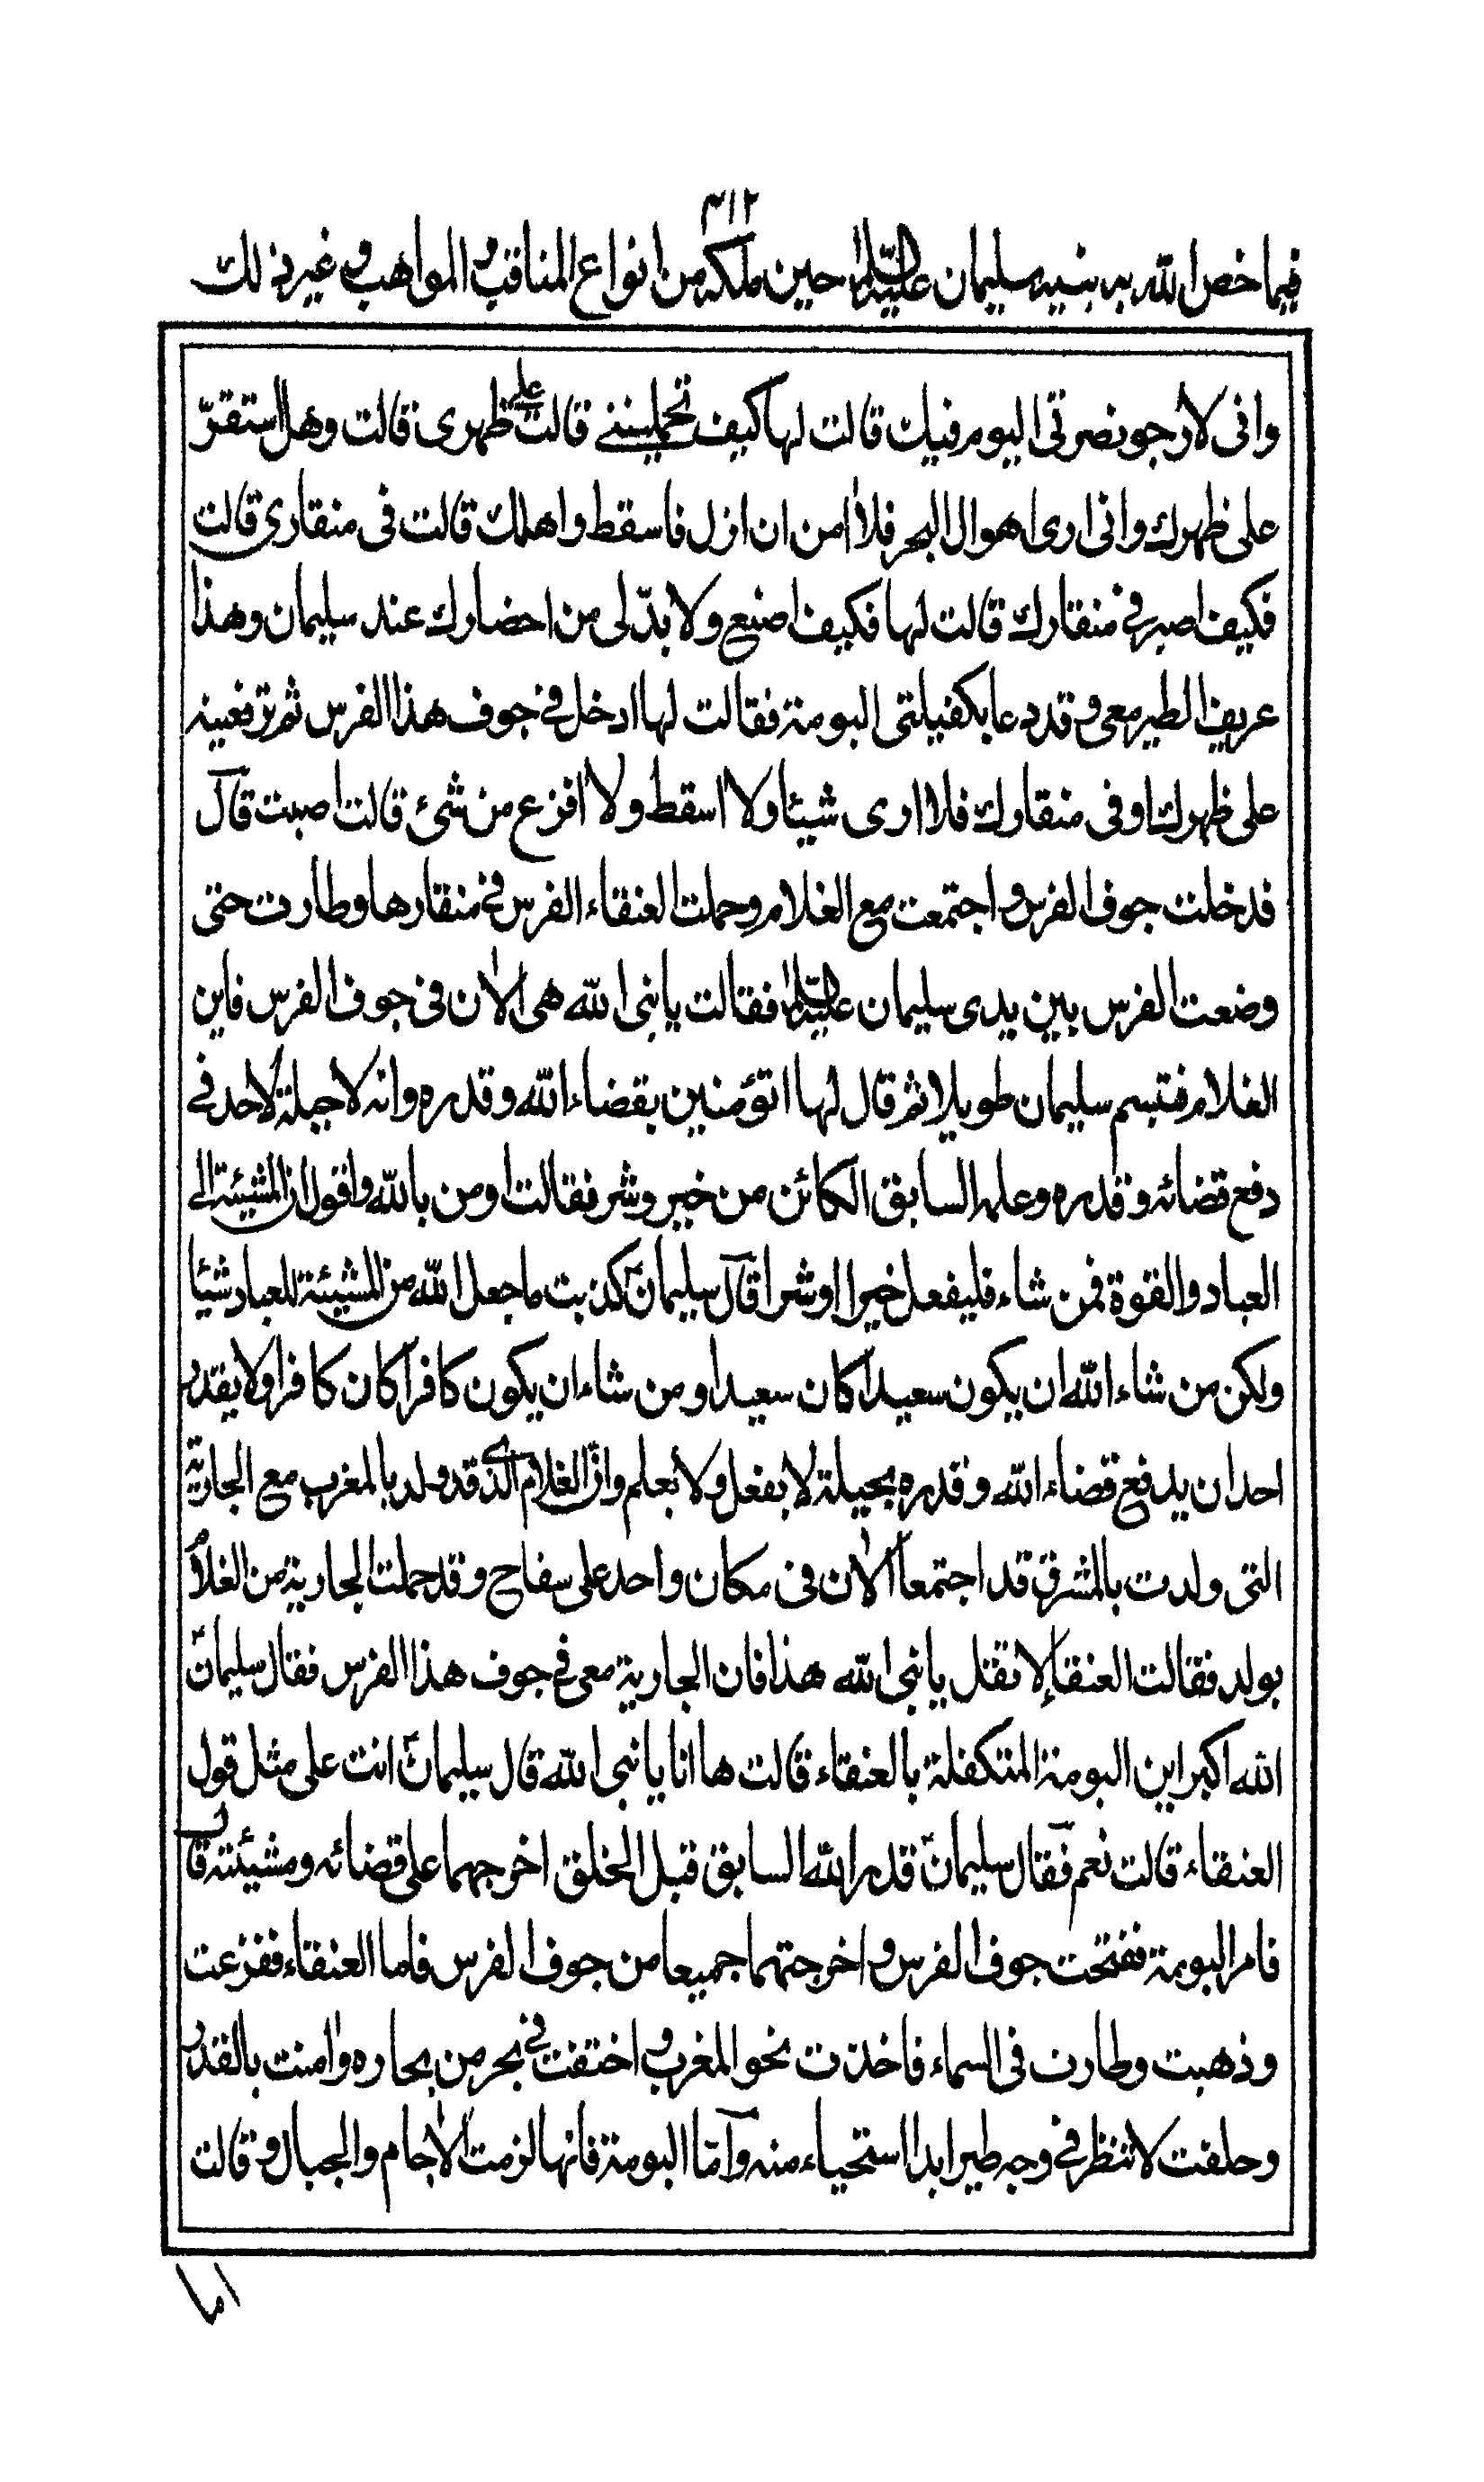 ٣١٢
فيما خص الله به نبيه سليمان عليه السلام حين ملكه من انواع المناقب والمواهب وغير ذلك
وانى لارجو نصرتى اليوم فيك قالت لها كيف تحملينني قالت على ظهرى قالت وهل استقرّ
على ظهرك وانى ارى اهوال البحر فلا اٰمن ان ازل فاسقط واهلك قالت فى منقارى قالت
فكيف اصبر في منقارك قالت لها فكيف اصنع ولا بدّ لى من احضارك عند سليمان وهذا
عريف الطير معى وقد دعا بكفيلتى البومة فقالت لها ادخل في جوف هذا الفرس ثم ترفعينه
على ظهرك او فى منقارك فلا ارى شيئا ولا اسقط ولا افزع من شئ قالت اصبت قال
فدخلت جوف الفرس واجتمعت مع الغلام وحملت العنقاء الفرس في منقارها وطارت حتى
وضعت الفرس بين يدى سليمان عليه السلام فقالت يا نبى الله هى الاٰن فى جوف الفرس فاين
الغلام فتبسم سليمان طويلا ثم قال لها اتؤمنين بقضاء الله وقدره وانه لا حيلة لاحد في
دفع قضائه وقدره وعلمه السابق الكائن من خير وشر فقالت اومن بالله واقول ان المشيئة الى
العباد والقوة فمن شاء فليفعل خيرا او شرا قال سليمانؑ كذبت ما جعل الله من المشيئة للعباد شيئا
ولكن من شاء الله ان يكون سعيدا كان سعيدا ومن شاء ان يكون كافرا كان كافرا ولا يقدر
احد ان يدفع قضاء الله وقدره بحيلة لا بفعل ولا بعلم وانّ الغلام الذى قد ولد بالمغرب مع الجارية
التى ولدت بالمشرق قد اجتمعا الاٰن فى مكان واحد على سفاح وقد حملت الجارية من الغلام
بولد فقالت العنقاء لا تقل يا نبى الله هذا فان الجارية معى في جوف هذا الفرس فقال سليمانؑ
الله اكبر اين البومة المتكفلة بالعنقاء قالت ها انا يا نبى الله قال سليمانؑ انت على مثل قول
العنقاء قالت نعم فقال سليمانؑ قدر الله السابق قبل الخلق اخرجهما على قضائه ومشيئته قال
فامر البومة ففتحت جوف الفرس واخرجتهما جميعا من جوف الفرس فاما العنقاء ففزعت
وذهبت وطارت فى السماء فاخذت نحو المغرب واختفت في بحر من بحاره واٰمنت بالقدر
وحلفت لا تنظر في وجه طير ابدا استحياء منه وامّا البومة فانها لزمت الاٰجام والجبال وقالت
اما